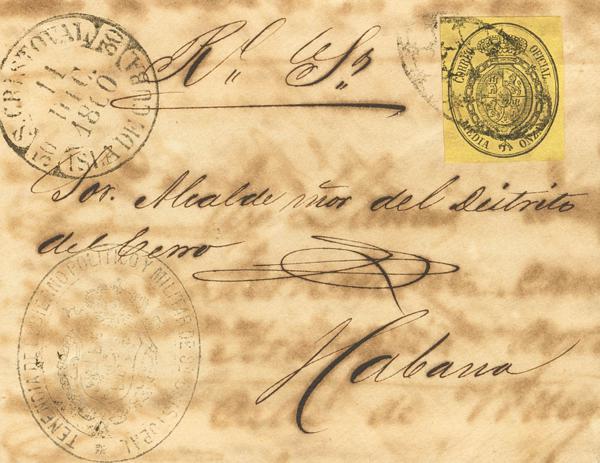 S. CRISTOVAL
11
DIC
1860
ISLA DE CUBA
Rl. Ss.
CORREO OFICIAL
MEDIA ONZA
Sor. Alcalde mor. del Distrito
del Cerro
Habana
TENENCIA DE GOBIERNO POLITICO Y MILITAR DE SAN CRISTOBAL